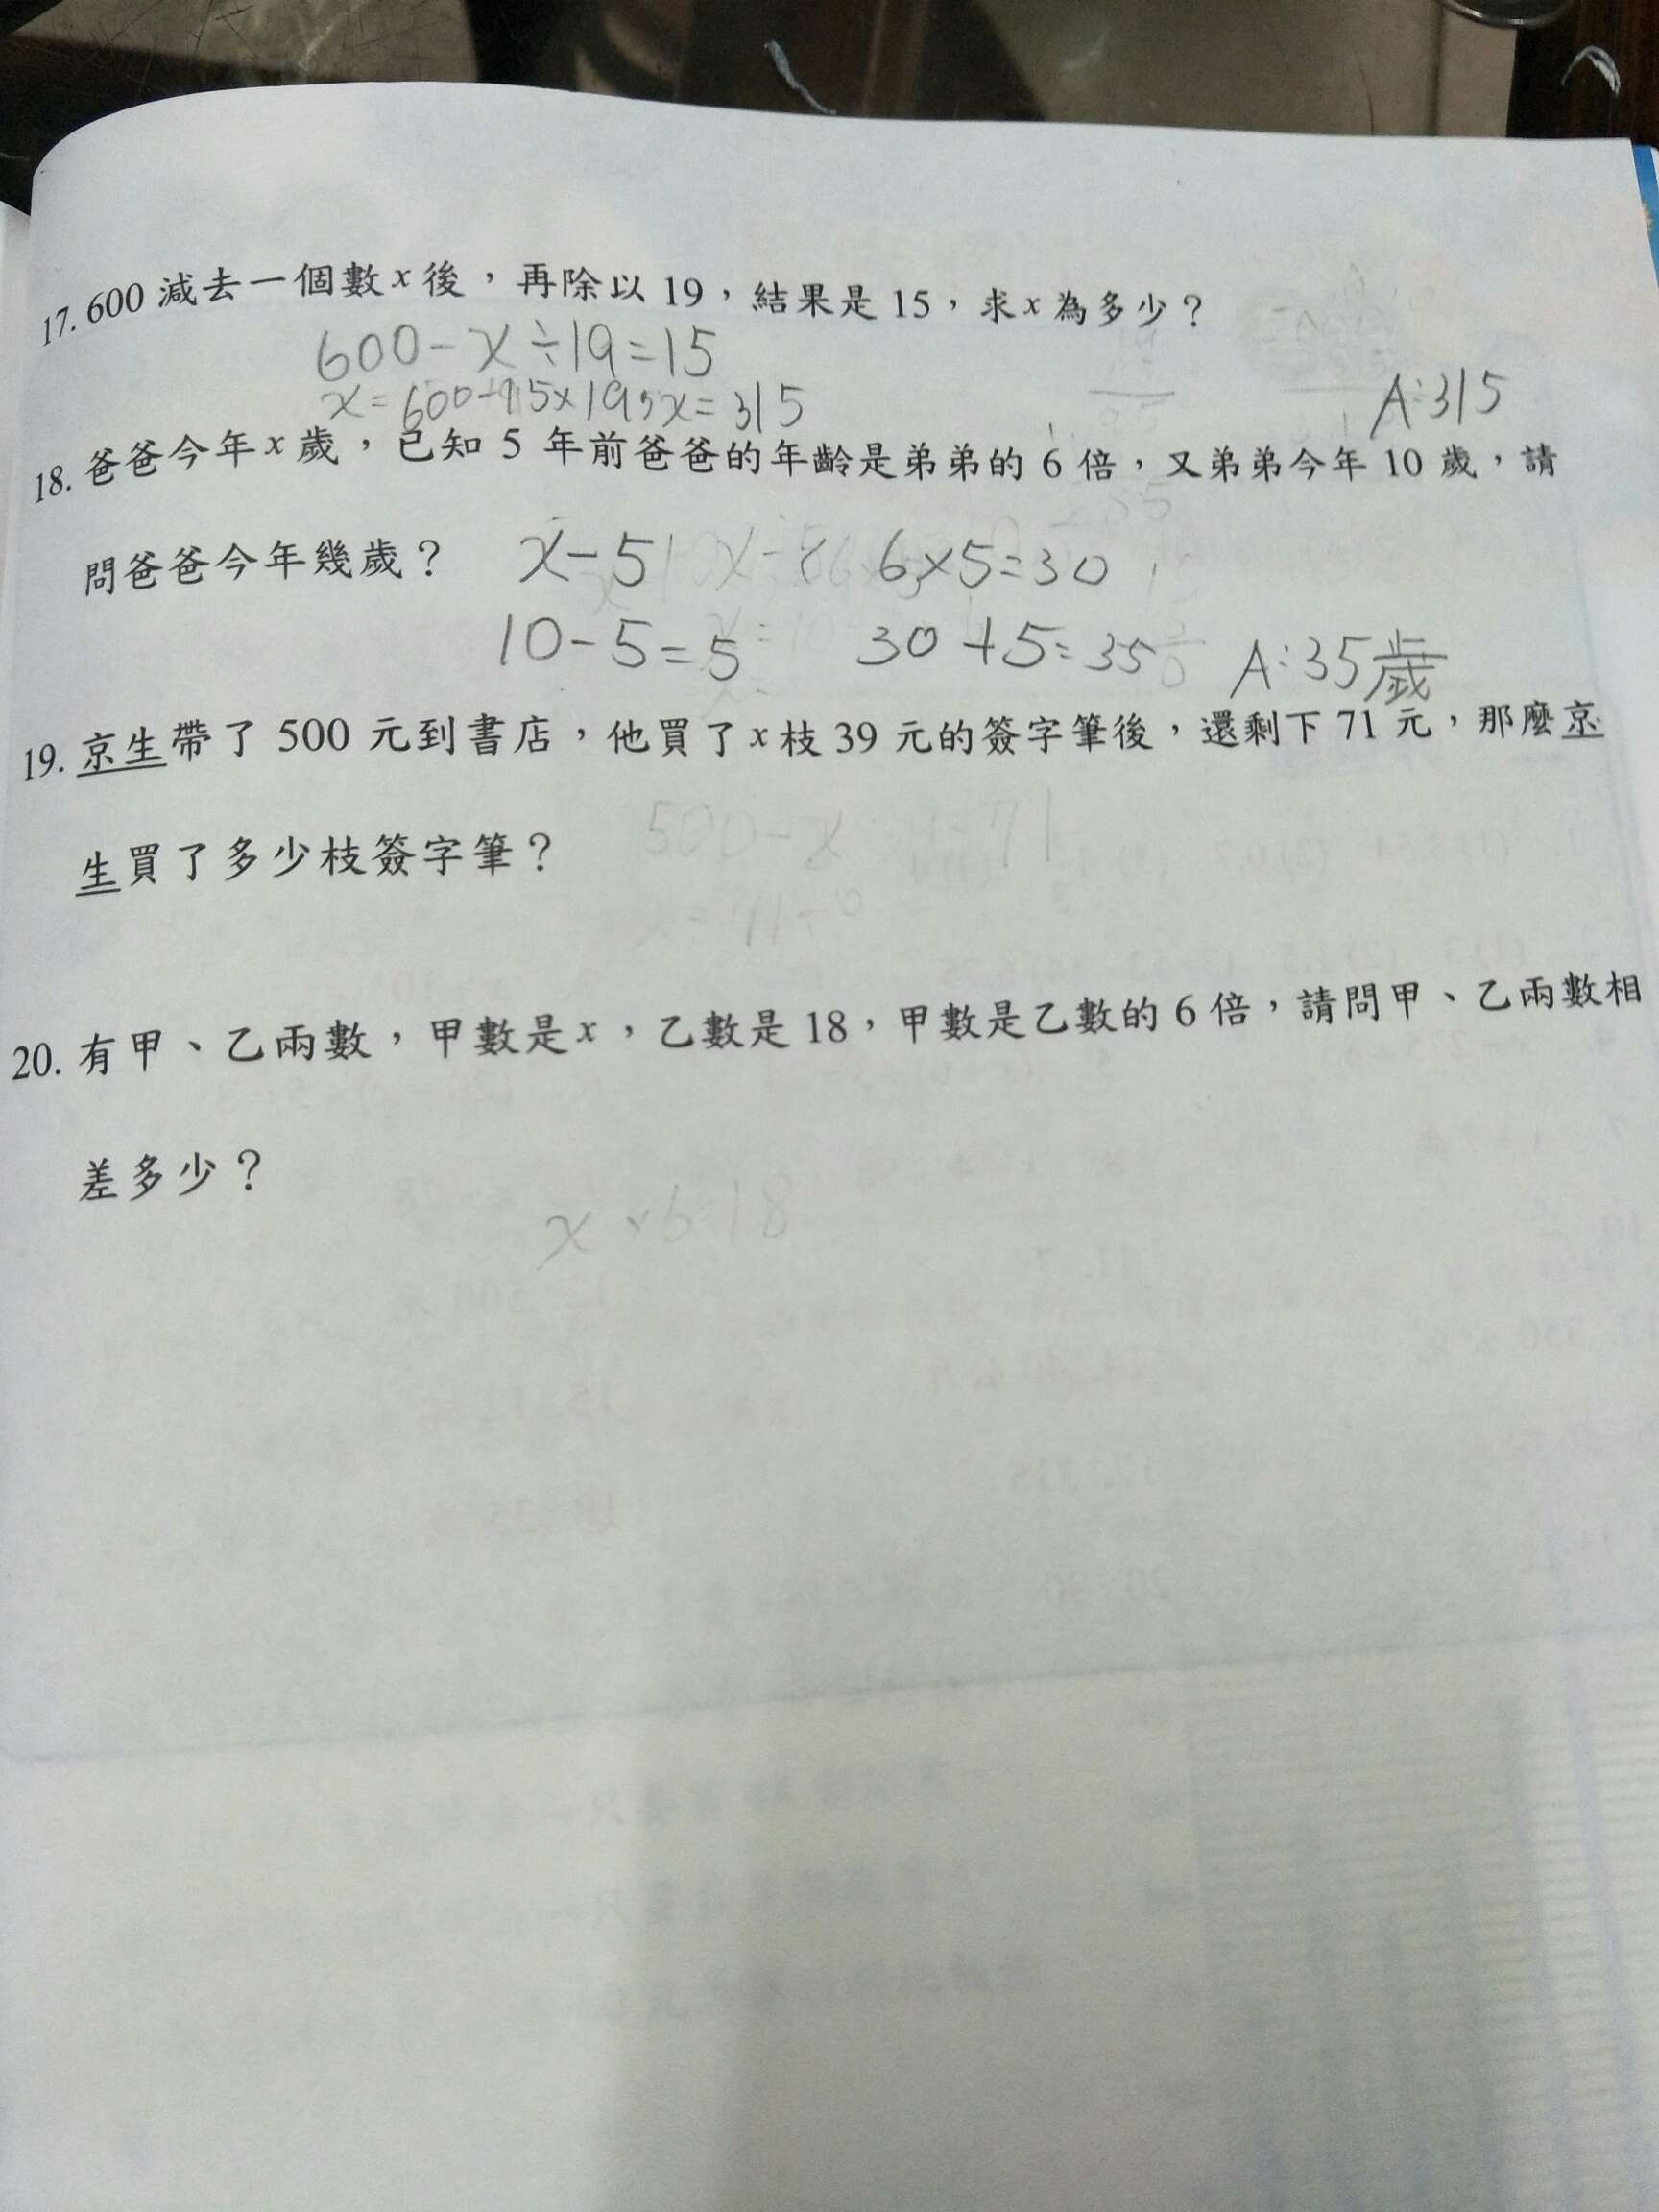 17. 600 減去一個數 x 後，再除以 19，結果是 15，求 x 為多少？
600－x÷19=15
x=600-15×19，x=315
A:315
18. 爸爸今年 x 歲，已知 5 年前爸爸的年齡是弟弟的 6 倍，又弟弟今年 10 歲，請
問爸爸今年幾歲？ x－5 6×5=30
10－5=5 30+5=35 A:35歲
19. 京生帶了 500 元到書店，他買了 x 枝 39 元的簽字筆後，還剩下 71 元，那麼京
生買了多少枝簽字筆？ 500－x 71
20. 有甲、乙兩數，甲數是 x，乙數是 18，甲數是乙數的 6 倍，請問甲、乙兩數相
差多少？
x×6 18